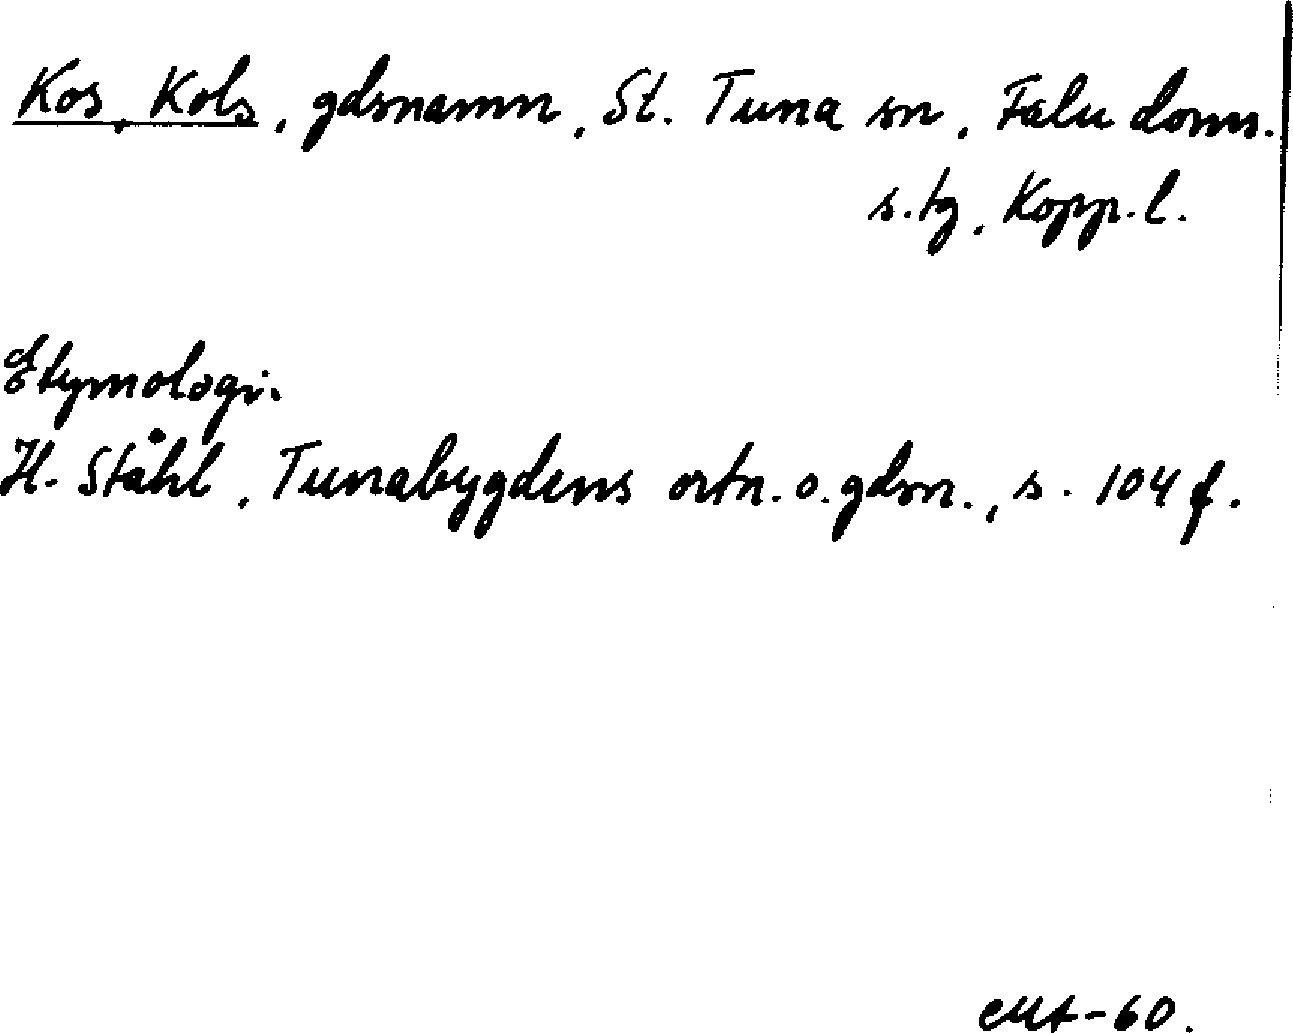 Kos, Kols, gdsnamn, St. Tuna sn, Falu doms.
s.tg, Kopp.l.
Etymologi.
H. Ståhl, Tunabygdens ortn. o. gdsn., s. 104 f.
-60.